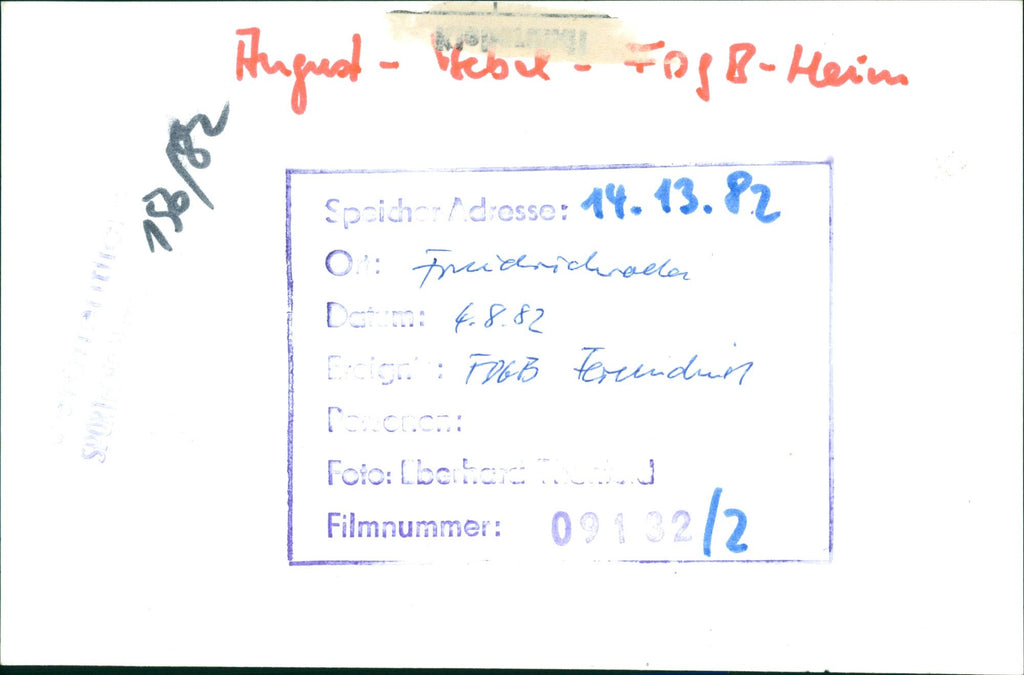 August - Bebel - FDGB - Heim
156/82
Speicher Adresse: 14.13.82
Ort: Friedrichroda
Datum: 4.8.82
Ereignis: FDGB
Personen:
Foto: Eberhard
Filmnummer: 09132/2